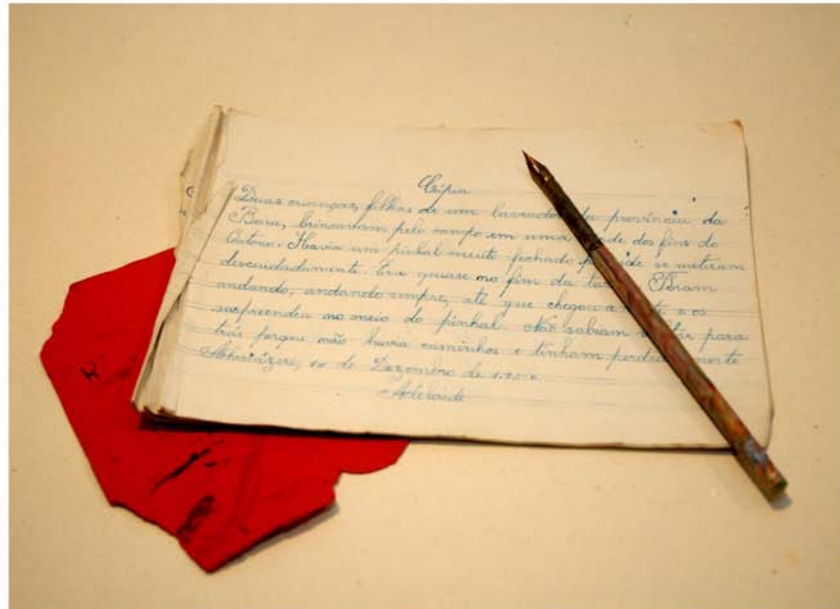 Cópia
Duas crianças, filhas de um lavrador da província da
Beira, brincavam pelo campo em uma de dos fins do
Outono. Havia um pinhal muito fechado por se meteram
descuidadamente. Era quase no fim da Foram
andando, andando sempre, até que chegou a e os
surpreendeu no meio do pinhal. Não sabiam para
trás porque não havia caminhos e tinham
14 de Dezembro de
Adelaide